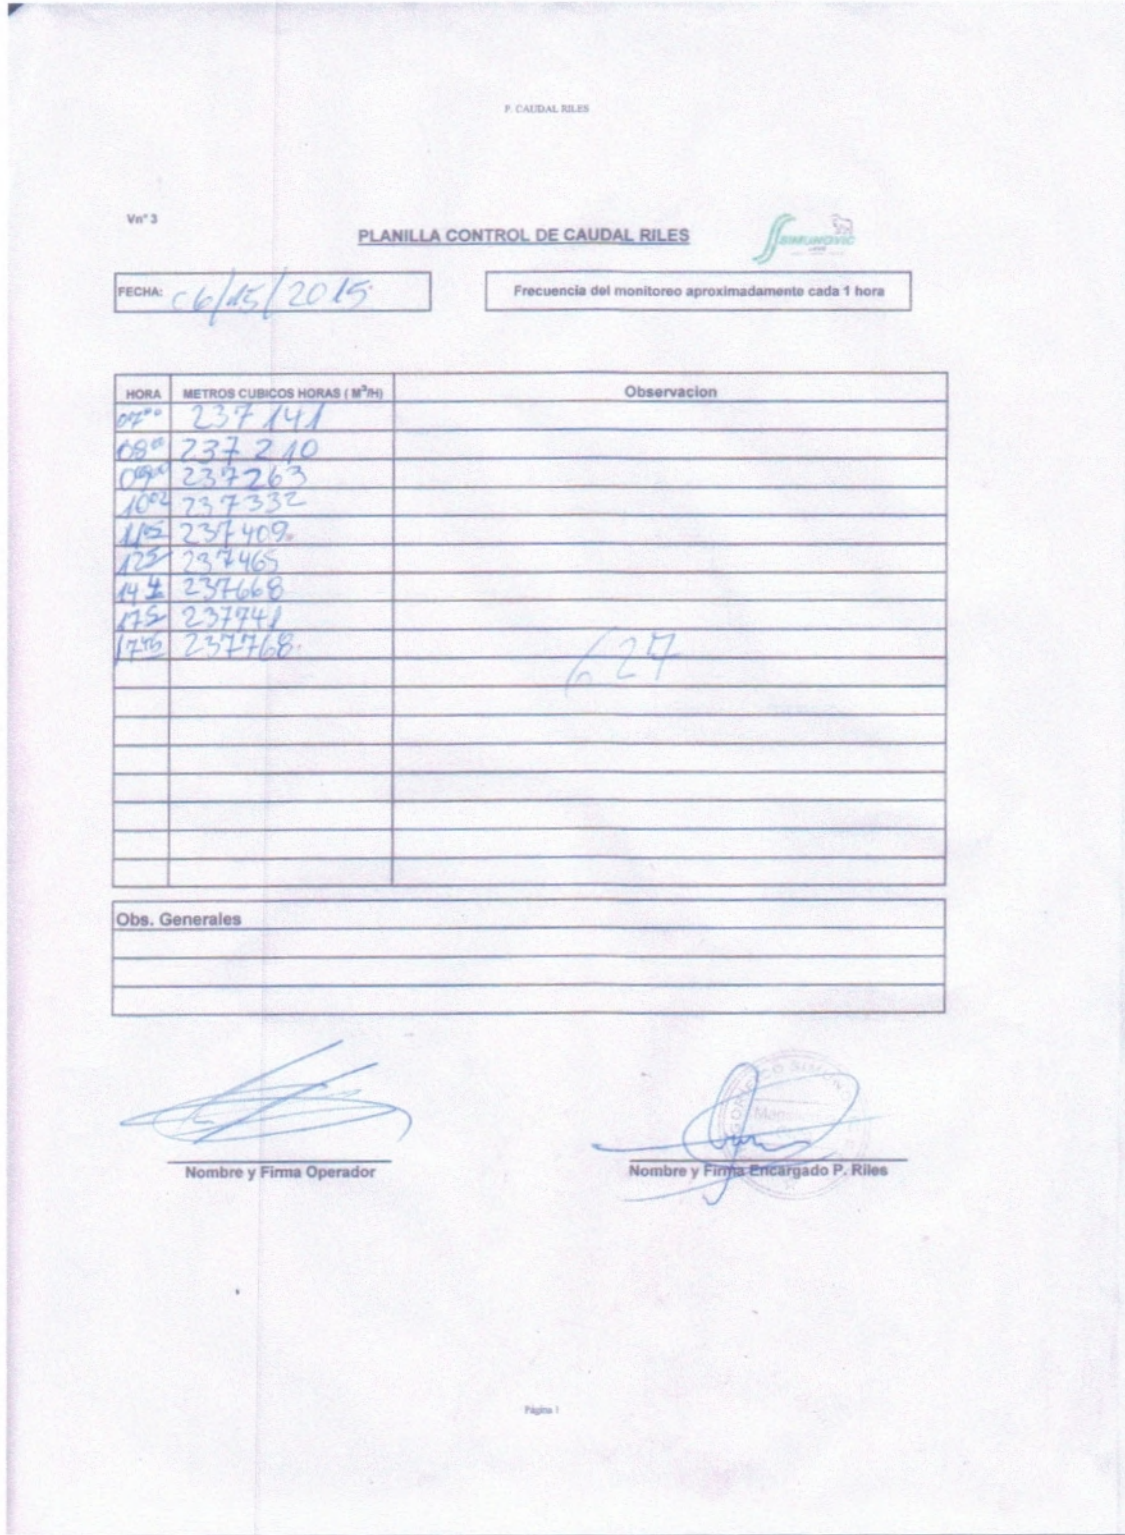 P. CAUDAL RILES
Vn° 3
PLANILLA CONTROL DE CAUDAL RILES
SIMUNOVIC
FECHA: 06/15/2015
Frecuencia del monitoreo aproximadamente cada 1 hora
HORA METROS CUBICOS HORAS ( M³/H) Observacion
07⁰⁰ 237141
08⁰⁰ 237210
09⁰⁰ 237263
10⁰² 237332
237409
237465
237668
237741
17⁴⁵ 237768
627
Obs. Generales
Nombre y Firma Operador
Nombre y Firma Encargado P. Riles
Página 1